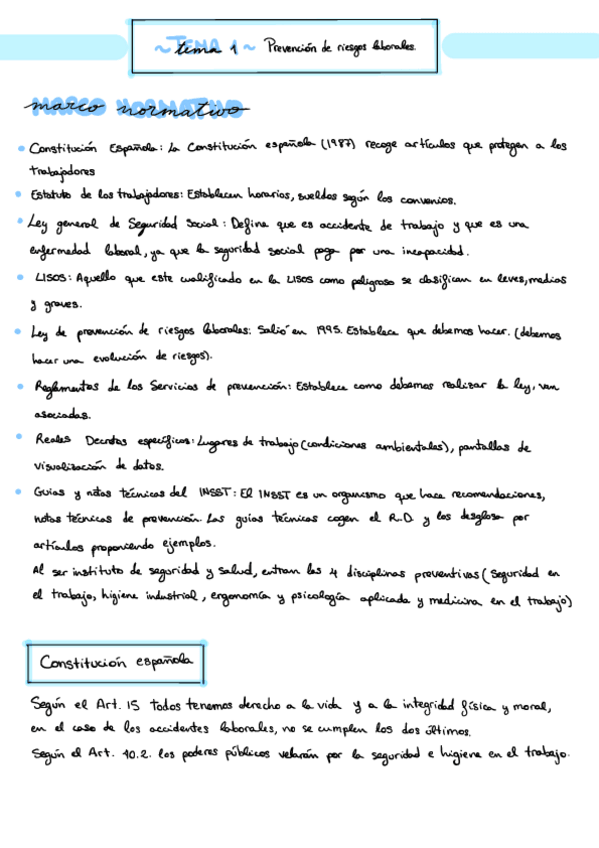 ~ TEMA 1 ~ Prevención de riesgos laborales.
marco normativo
• Constitución Española: La Constitución española (1987) recoge artículos que protegen a los
trabajadores
• Estatuto de los trabajadores: Establecen horarios, sueldos según los convenios.
• Ley general de Seguridad Social: Define que es accidente de trabajo y que es una
enfermedad laboral, ya que la seguridad social paga por una incapacidad.
• LISOS: Aquello que este cualificado en la LISOS como peligroso se clasifican en leves, medios
y graves.
• Ley de prevención de riesgos laborales: Salió en 1995. Establece que debemos hacer. (debemos
hacer una evolución de riesgos).
• Reglamentos de los Servicios de prevención: Establece como debemos realizar la ley, van
asociadas.
• Reales Decretos específicos: Lugares de trabajo (condiciones ambientales), pantallas de
visualización de datos.
• Guías y notas técnicas del INSST: El INSST es un organismo que hace recomendaciones,
notas técnicas de prevención. Las guías técnicas cogen el R.D. y los desglosa por
artículos proponiendo ejemplos.
Al ser instituto de seguridad y salud, entran las 4 disciplinas preventivas (Seguridad en
el trabajo, higiene industrial, ergonomía y psicología aplicada y medicina en el trabajo)
Constitución española
Según el Art. 15 todos tenemos derecho a la vida y a la integridad física y moral,
en el caso de los accidentes laborales, no se cumplen los dos últimos.
Según el Art. 40.2. los poderes públicos velarán por la seguridad e higiene en el trabajo.